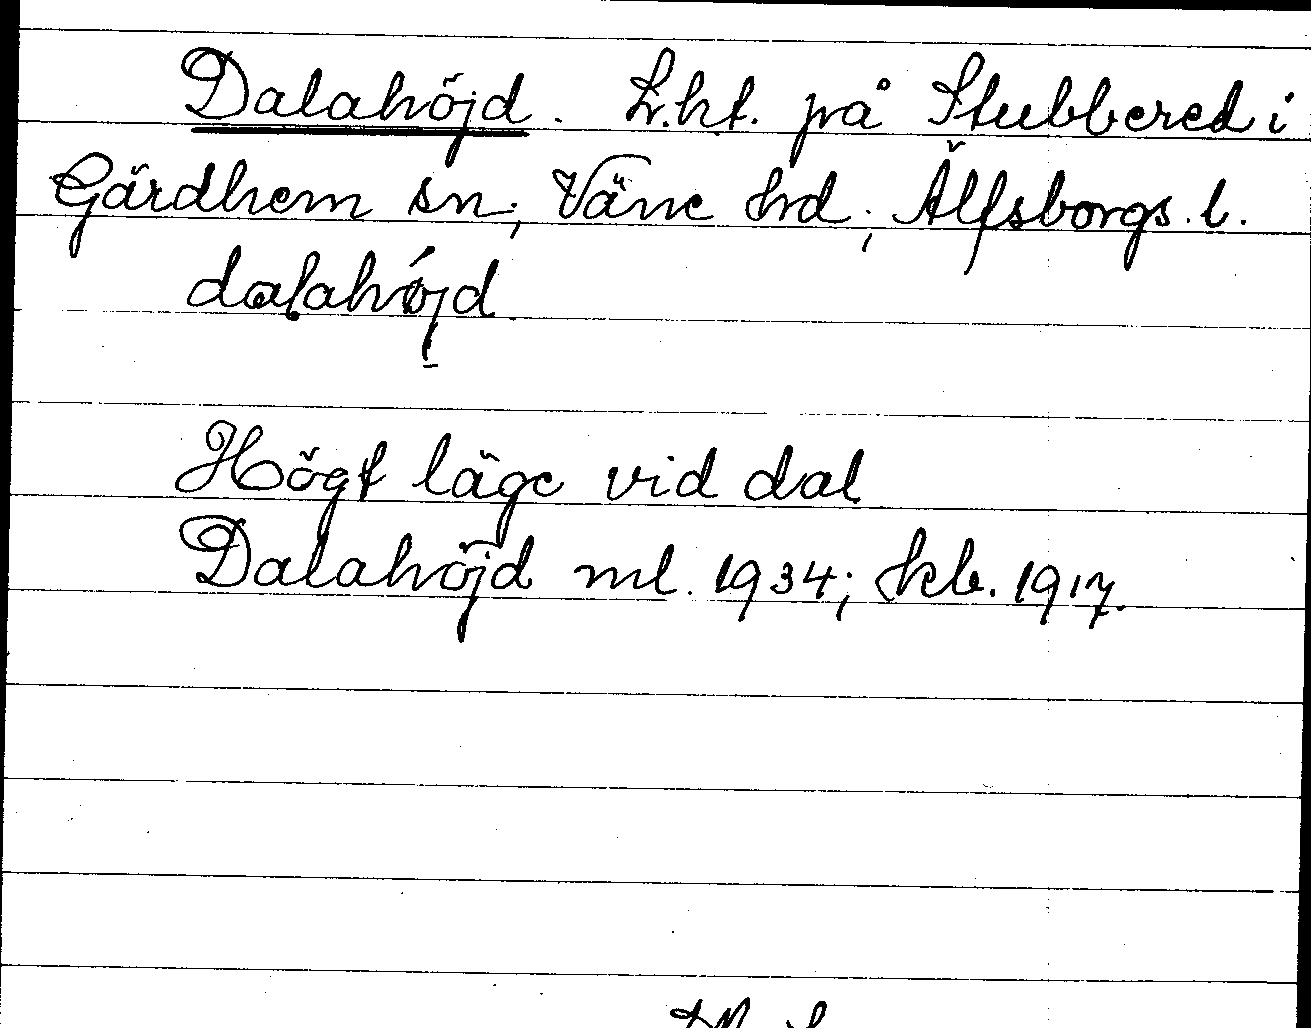 Dalahöjd. L.ht. på Stubbered i
Gärdhem sn; Väne hd; Älfsborgs. l.
dalahöjd
Högt läge vid dal
Dalahöjd ml. 1934; kb. 1917.